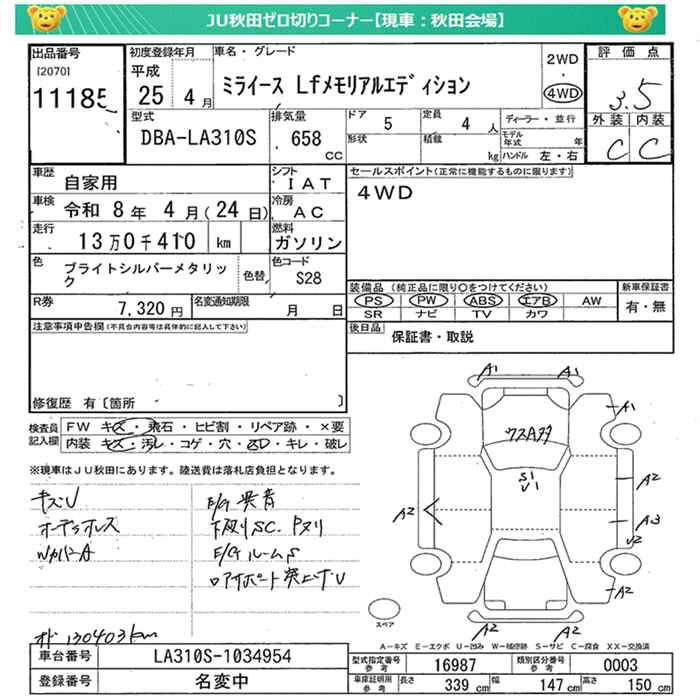 JU秋田ゼロ切りコーナー【現車：秋田会場】
出品番号
[2070]
11185
初度登録年月
平成
25 4月
車名・グレード
ミライース Lfメモリアルエディション
2WD
・
4WD
評価点
3.5
外装 内装
C C
型式
DBA-LA310S
排気量
658
cc
ドア
5
定員
4 人
形状
積載
kg
ディーラー・並行
モデル年式 年
ハンドル 左・右
車歴
自家用
シフト
IAT
車検
令和 8年 4月(24日)
冷房
AC
走行
13万0千410 km
燃料
ガソリン
色
ブライトシルバーメタリック
色替
色コード
S28
R券
7,320 円
名変通知期限
月 日
セールスポイント(正常に機能するものに限ります)
4WD
装備品 (純正品に限り○をつけてください)
PS PW ABS エアB AW
SR ナビ TV カワ
新車保証書
有・無
後日品
保証書・取説
注意事項申告欄(不具合内容等は具体的に記入して下さい)
修復歴 有〔箇所 〕
検査員記入欄
FW キズ・飛石・ヒビ割・リペア跡・×要
内装 キズ・汚レ・コゲ・穴・スレ・キレ・破レ
※現車はJU秋田にあります。陸送費は落札店負担となります。
キズU
オーデッオレス
WカバーA
E/G異音
下廻りSC、Pヌリ
E/GルームS
ロアイボート突上げU
オド130403km
A1
A1
A1
ワスAヌタ
S1
U1
A2
A2
A3
U2
A2
A2
A2
スペア
A－キズ E－エクボ U－凹み W－補修跡 S－サビ C－腐食 XX－交換済
車台番号
LA310S-1034954
登録番号
名変中
型式指定番号
参考
16987
類別区分番号
参考
0003
車庫証明用
参考
長さ 339 cm
幅 147 cm
高さ 150 cm